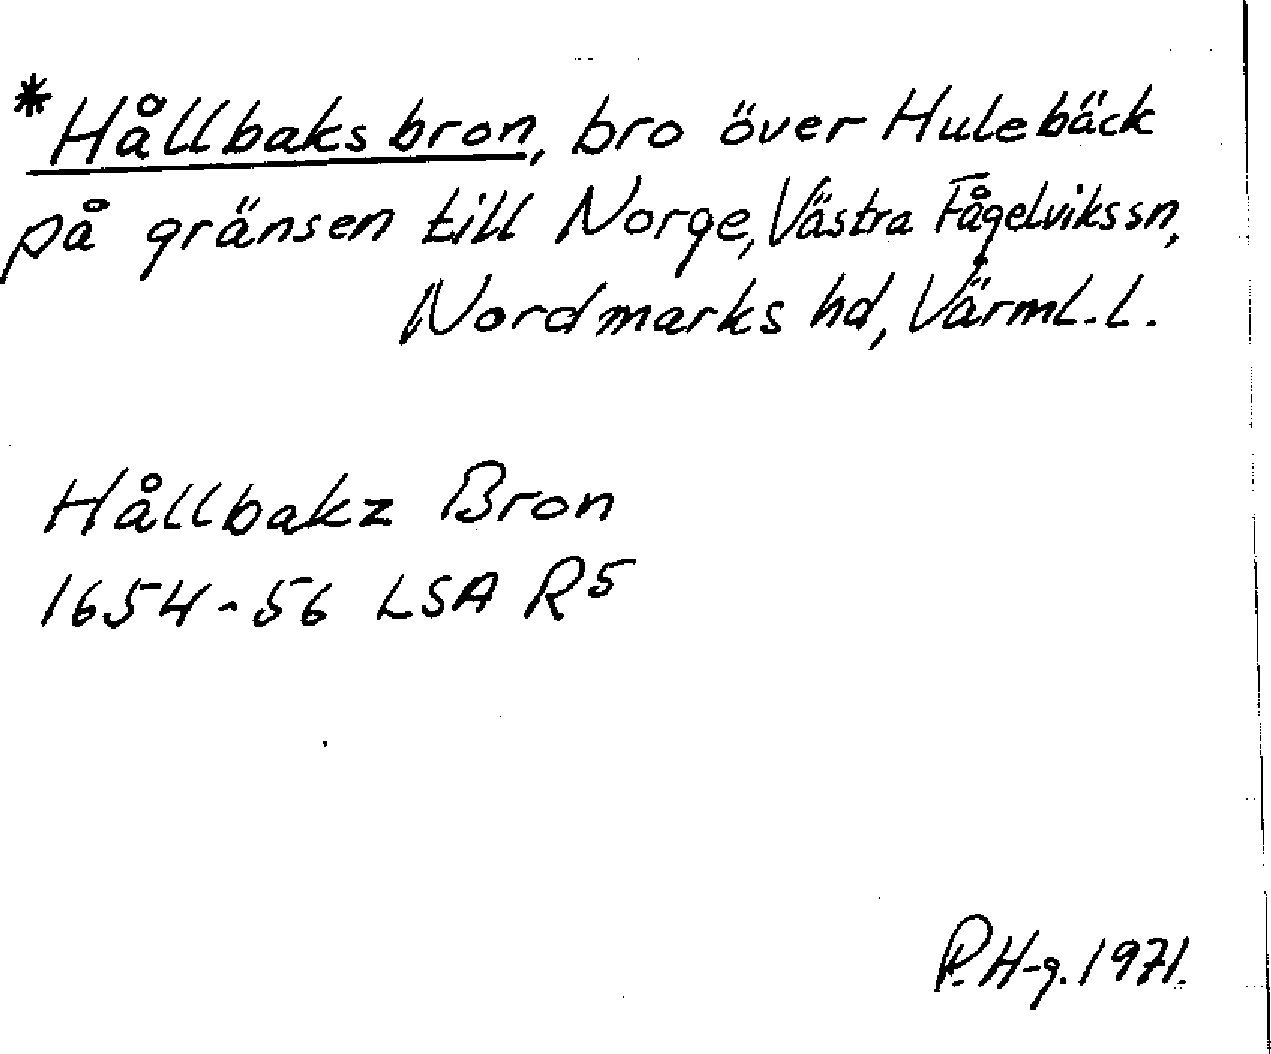 *Hållbaksbron, bro över Hulebäck
på gränsen till Norge, Västra Fågelviks sn,
Nordmarks hd, Värml. l.
Hållbakz Bron
1654-56 LSA R5
P.H-g. 1971.